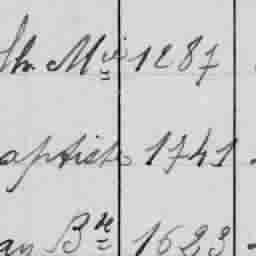 Th. Mvis 1287
aptiste 1741
ay Bne 1623